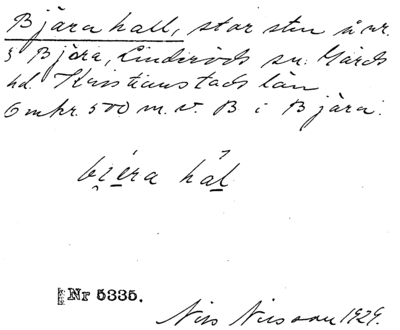 Bjärahall, stor sten å nr.
3 Bjära, Linderöds sn. Gärds
hd. Kristianstads län
Omkr. 500 m. v. B i Bjära.
bi̯era hal
Nr 5335.
Nils Nilsson 1929.